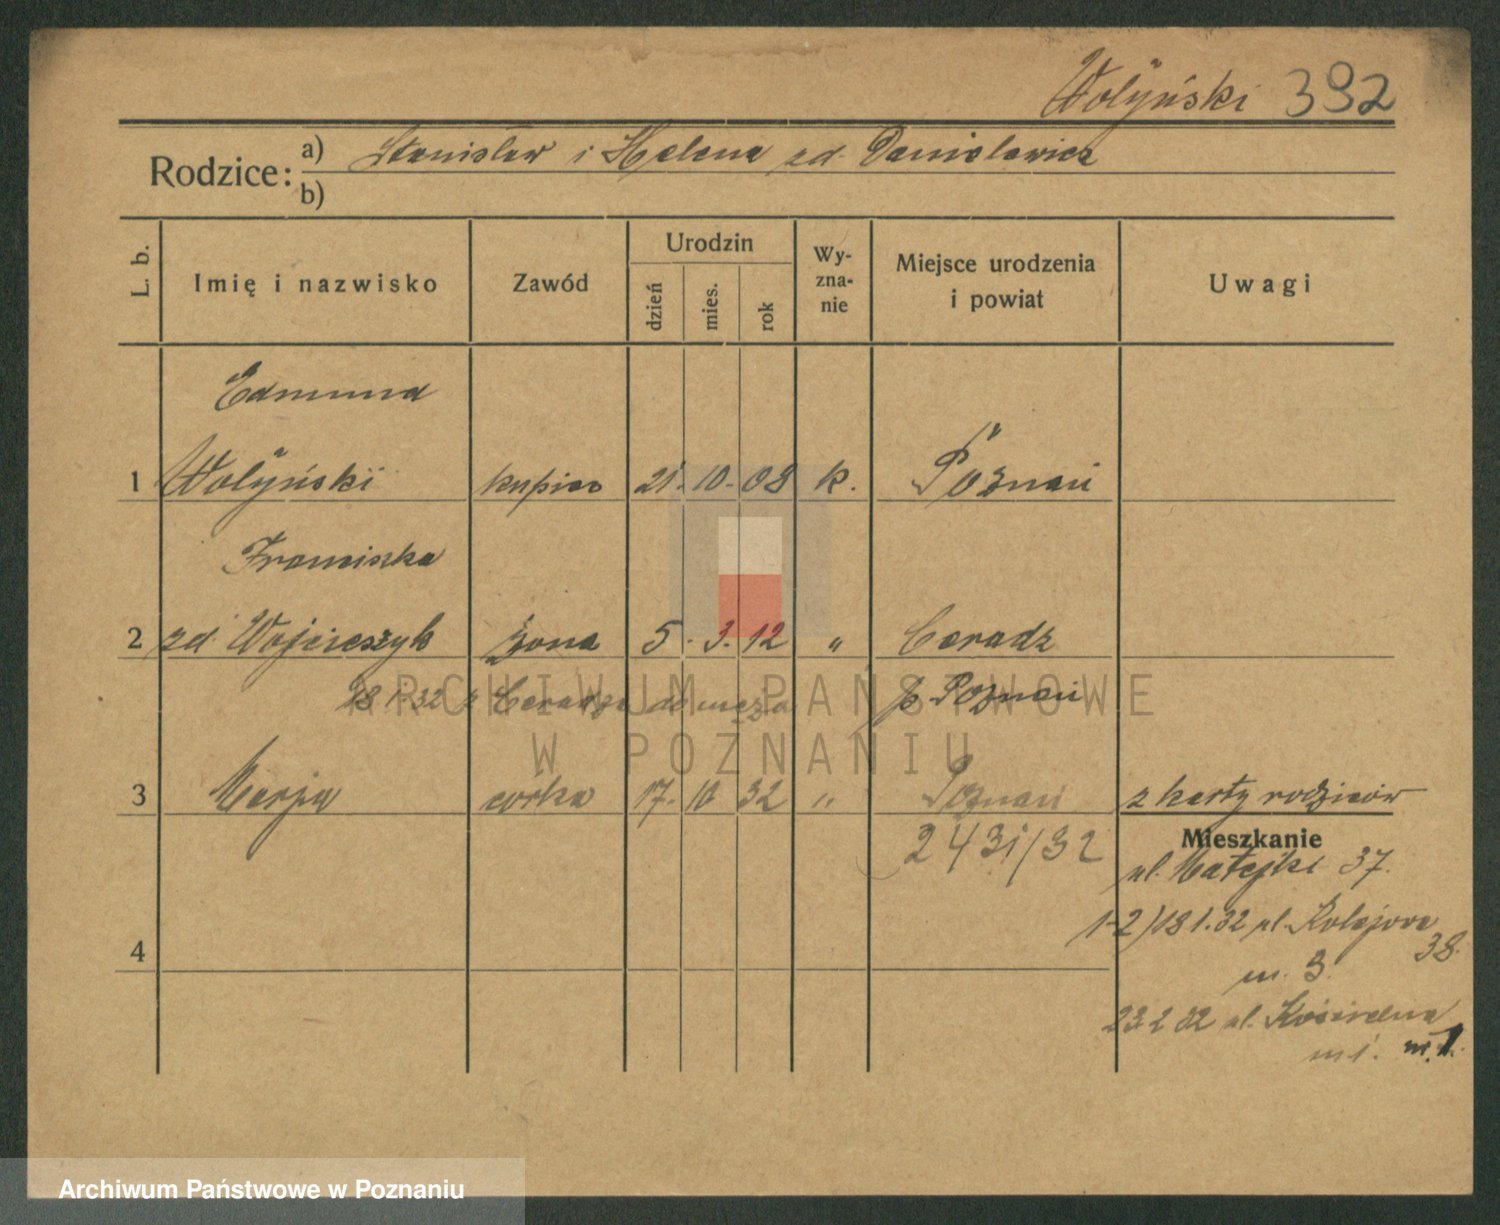 Wołyński 392
Rodzice: a) Stanisław i Helena zd. Danielewicz
b)
L. b.
Imię i nazwisko
Zawód
Urodzin
dzień
mies.
rok
Wy-
zna-
nie
Miejsce urodzenia
i powiat
Uwagi
Edmund
1 Wołyński kupiec 21. 10. 08 k. Poznań
Franciszka
2 zd. Wojcieszyk żona 5. 3. 12 " Ceradz
18 1. 32 z Ceradza do męża p. Poznań
3 Marja córka 17. 10 32 " Poznań z karty rodziców
2431/32
Mieszkanie
ul. Matejki 37.
1-2) 18 1. 32 ul. Kolejowa
38.
4
m. 3.
23 2 32 ul. Kościelna
m 1. m. 1.
ARCHIWUM PAŃSTWOWE
W POZNANIU
Archiwum Państwowe w Poznaniu